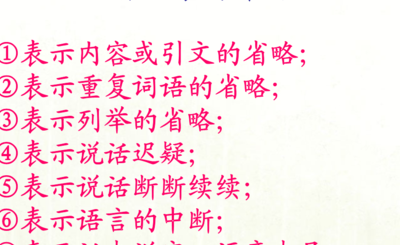 ①表示内容或引文的省略;
②表示重复词语的省略;
③表示列举的省略;
④表示说话迟疑;
⑤表示说话断断续续;
⑥表示语言的中断;